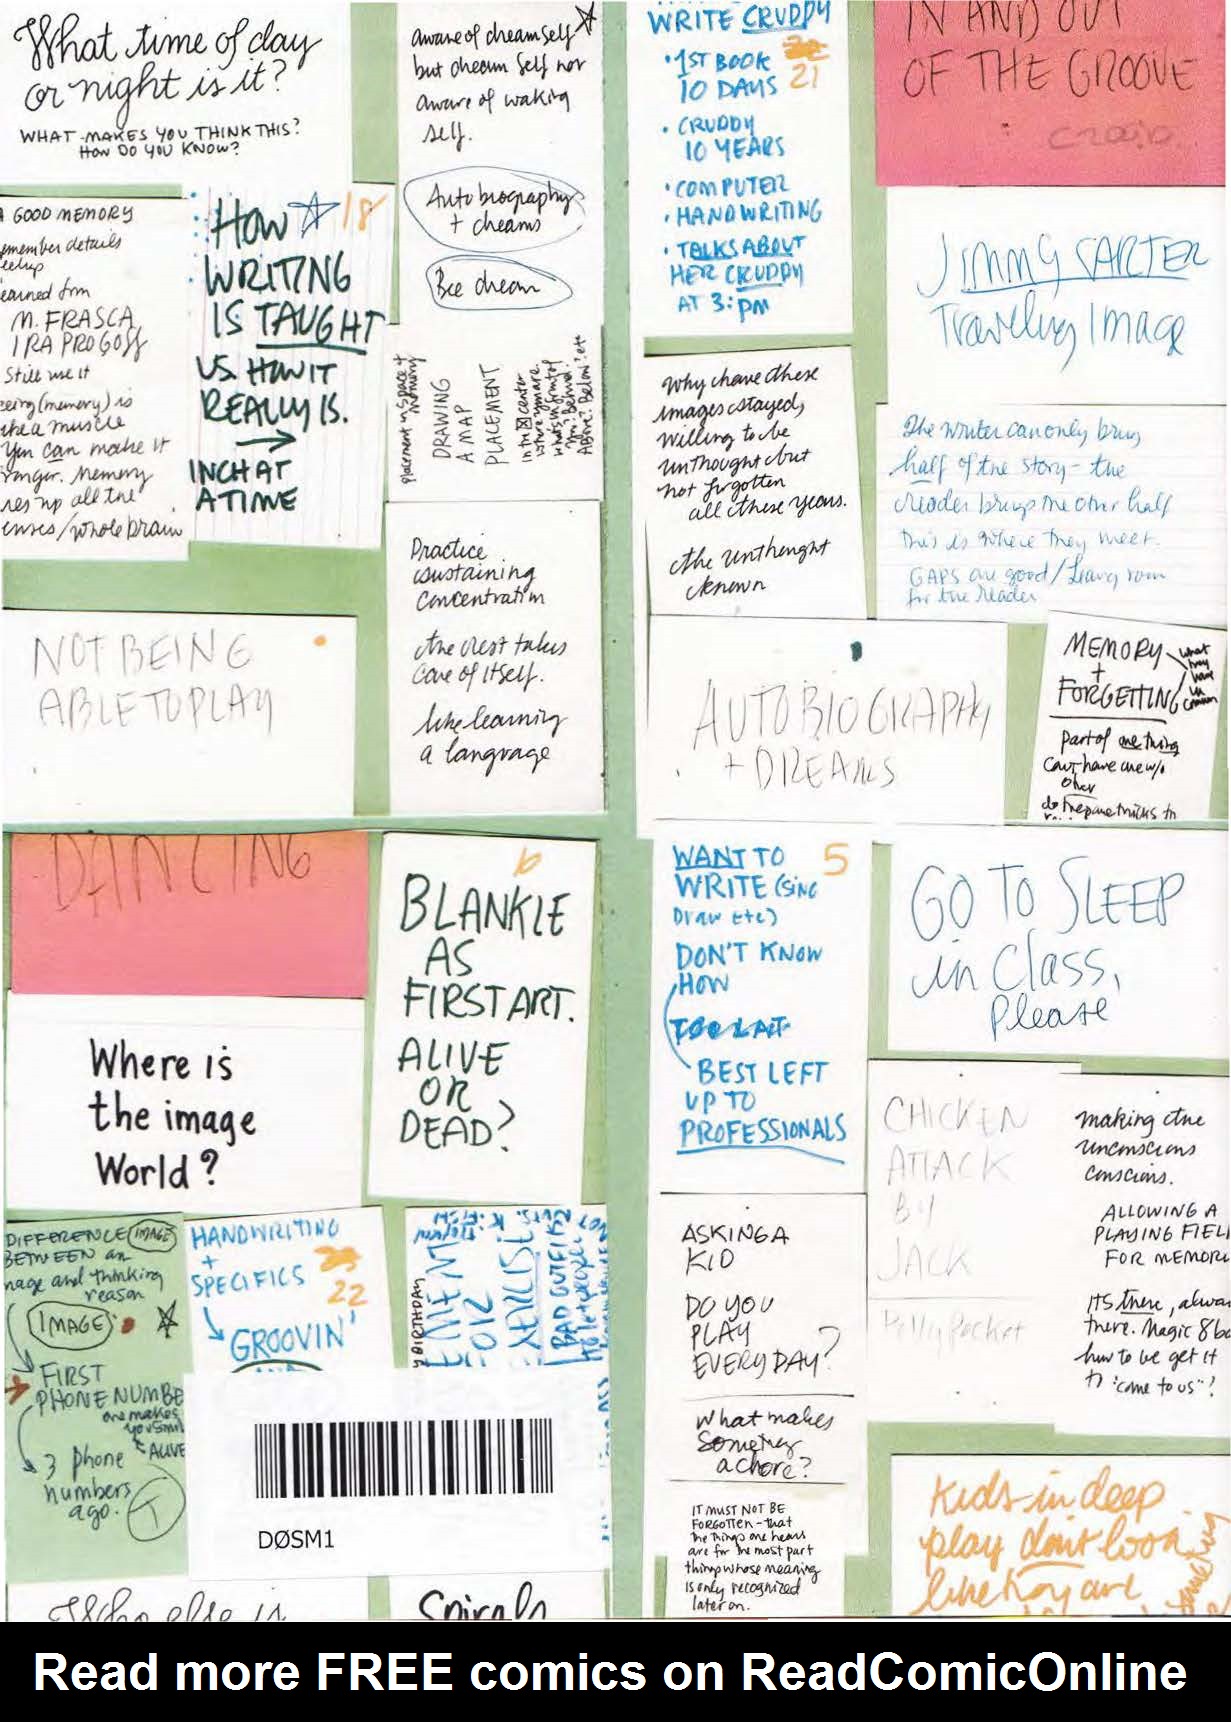 What time of day
or night is it?
WHAT MAKES YOU THINK THIS?
HOW DO YOU KNOW?
A GOOD MEMORY
emember details
earned from
M. FRASCA
IRA PROGOFF
Still use it
eeing (memory) is
like a muscle
You can make it
ronger. Memory
res up all the
enses/whole brain
HOW 18
WRITING
IS TAUGHT
VS. HOW IT
REALLY IS.
INCH AT
A TIME
NOT BEING
ABLE TO PLAY
aware of dream self
but dream self not
aware of waking
self.
Autobiography
+ dreams
Bee dream
placement in space +
memory
DRAWING
A MAP
PLACEMENT
In the center
where you are.
What's in front of
you? Behind?
Above? Below? etc
Practice
sustaining
concentration
the rest takes
care of itself.
like learning
a language
WRITE CRUDDY
• 1ST BOOK
10 DAYS 21
• CRUDDY
10 YEARS
• COMPUTER
• HANDWRITING
• TALKS ABOUT
HER CRUDDY
AT 3: PM
Why have these
images stayed,
willing to be
unthought but
not forgotten
all these years.
the unthought
known
IN AND OUT
OF THE GROOVE
JIMMY CARTER
Traveling Image
The writer can only bring
half of the story - the
reader brings the other half
this is where they meet.
GAPS are good/Leaving room
for the reader
AUTOBIOGRAPHY
+ DREAMS
MEMORY
+
FORGETTING
what
they
have
in
common
part of one thing
Can't have one w/o
other
DANCING
Where is
the image
World?
6
BLANKIE
AS
FIRST ART.
ALIVE
OR
DEAD?
DIFFERENCE IMAGE
BETWEEN an
mage and thinking
reason
IMAGE
FIRST
PHONE NUMBE
one makes
you smil
ALIVE
3 phone
numbers
ago.
T
HANDWRITING
+
SPECIFICS
22
GROOVIN'
Y BIRTHDAY
EXERCISE
BAD OUTFIT
DØSM1
Who else is
Spirals
WANT TO 5
WRITE (SING
Draw Etc)
DON'T KNOW
HOW
TOO LAT
BEST LEFT
UP TO
PROFESSIONALS
ASKING A
KID
DO YOU
PLAY
EVERY DAY?
What makes
Something
a chore?
IT MUST NOT BE
FORGOTTEN - that
the things one hears
are for the most part
things whose meaning
is only recognized
later on.
GO TO SLEEP
in Class,
Please
CHICKEN
ATTACK
BY
JACK
Polly Pocket
making the
unconscious
conscious.
ALLOWING A
PLAYING FIEL
FOR MEMOR
ITS there, alwa
there. Magic 8 ba
how to we get it
to "come to us"?
Kids in deep
play don't look
like they are
Read more FREE comics on ReadComicOnline